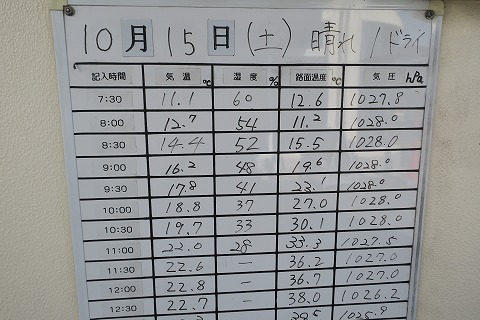 10月15日(土) 晴れ/ドライ
記入時間 気温 ℃ 湿度 % 路面温度 ℃ 気圧 hPa
7:30 11.1 60 12.6 1027.8
8:00 12.7 54 11.2 1028.0
8:30 14.4 52 15.5 1028.0
9:00 16.2 48 19.6 1028.0
9:30 17.8 41 23.1 1028.0
10:00 18.8 37 27.0 1028.0
10:30 19.7 33 30.1 1028.0
11:00 22.0 28 33.3 1027.5
11:30 22.6 － 36.2 1027.0
12:00 22.8 － 36.7 1027.0
12:30 22.7 － 38.0 1026.2